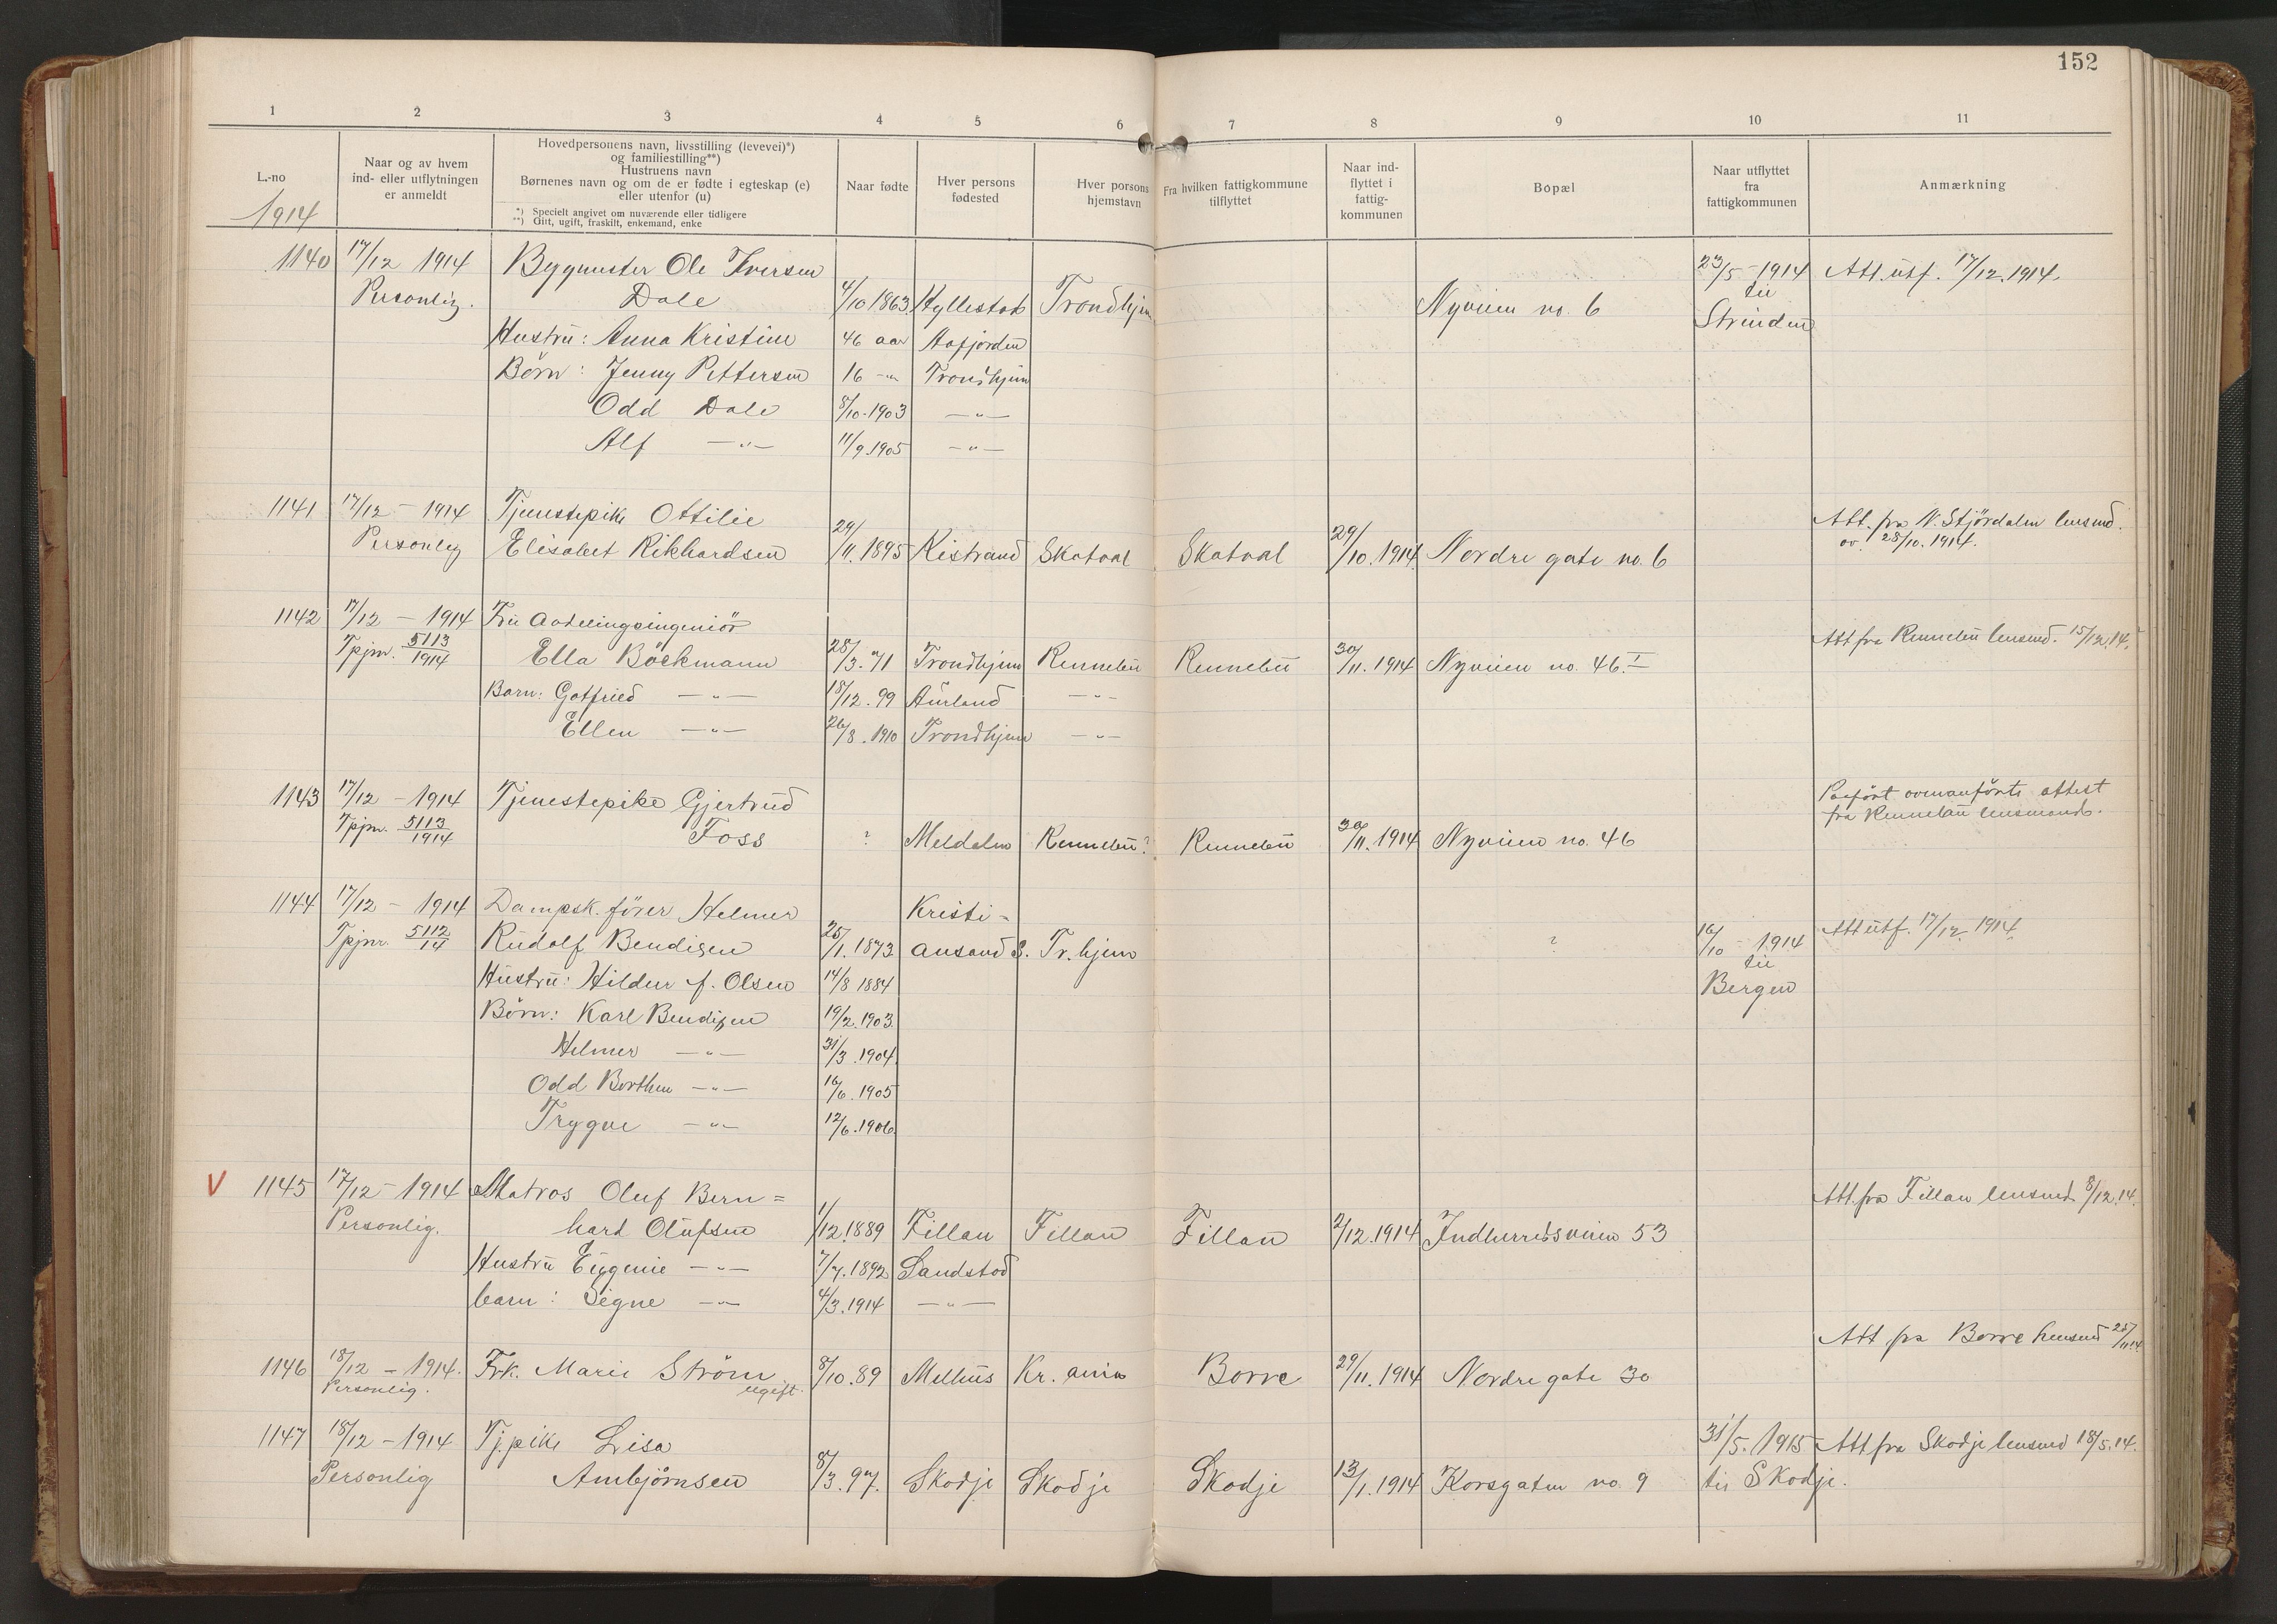 152
1 2 3 4 5 6 7 8 9 10 11
L.-no
1914
Naar og av hvem
ind- eller utflytningen
er anmeldt
Hovedpersonens navn, livsstilling (levevei)*)
og familiestilling**)
Hustruens navn
Børnenes navn og om de er fødte i egteskap (e)
eller utenfor (u)
*) Specielt angivet om nuværende eller tidligere
**) Gift, ugift, fraskilt, enkemand, enke
Naar fødte
Hver persons
fødested
Hver porsons
hjemstavn
Fra hvilken fattigkommune
tilflyttet
Naar ind-
flyttet i
fattig-
kommunen
Bopæl
Naar utflyttet
fra
fattigkommunen
Anmærkning
1140 17/12 1914 Bygmester Ole Iversen 23/5 - 1914 Att. utf. 17/12.1914.
Personlig. Dale 4/10 1863 Hyllestad Trondhjem Nyveien no. 6 til
Strinden
Hustru: Anna Kristine 46 aar Aafjorden
Børn: Jenny Pettersen 16 -"- Trondhjem
Odd Dale 8/10.1903 -"-
Alf -"- 11/9.1905 -"-
1141 17/12 - 1914 Tjenestepike Ottilie Att. fra N. Stjørdalen lensmd.
Personlig Elisabet Rikhardsen 29/11.1895 Kistrand Skatval Skatval 29/10.1914 Nordre gate no. 6 av 28/10.1914.
1142 17/12 - 1914 Fru Avdelingsingeniør
Tpjnr. 5113/1914 Ella Böckmann 28/3.71 Trondhjem Rennebu Rennebu 30/11.1914 Nyveien no. 46 I Att fra Rennebu lensmd. 15/12.14.
Barn: Gotfried -"- 18/12.99 Aurland -"-
Ellen -"- 26/8.1910 Trondhjem -"-
1143 17/12 - 1914 Tjenestepike Gjertrud Paaført ovenanførte attest
Tpjnr. 5113/1914 Foss ? Meldalen Rennebu? Rennebu 30/11.1914 Nyveien no. 46 fra Rennebu lensmand.
1144 17/12 - 1914 Dampsk. fører Helmer Kristi-
Tpjnr. 5112/14 Rudolf Bendixen 25/1.1873 ansand S. Tr.hjem ? 16/10 - 1914 Att utf. 17/12.1914.
til
Hustru: Hildur f. Olsen 14/8 1884 Bergen
Børn: Karl Bendixen 19/2.1903
Helmer -"- 31/3.1904
Odd Borthen -"- 16/6.1905
Trygve -"- 12/6.1906
V 1145 17/12 - 1914 Matros Oluf Bern= Att. fra Fillan lensmd 8/12.14.
Personlig. hard Olufsen 1/12.1889 Fillan Fillan Fillan 2/12.1914 Indherredsveien 53
Hustru Eugenie -"- 7/7.1892 Sandstad
barn: Signe -"- 4/3.1914 -"-
Att fra Borre lensmd 25/11.14
1146 18/12 - 1914. Frk. Marie Strøm 8/10.89 Melhus Kr.ania Borre 29/11.1914 Nordre gate 30
Personlig. ugift.
1147 18/12 - 1914 Tj.pike Lisa 31/5.1915 Att fra Skodje lensmd 18/5.14.
Personlig Ambjørnsen 8/3.97. Skodje Skodje Skodje 13/1.1914 Korsgaten no. 9 til Skodje.